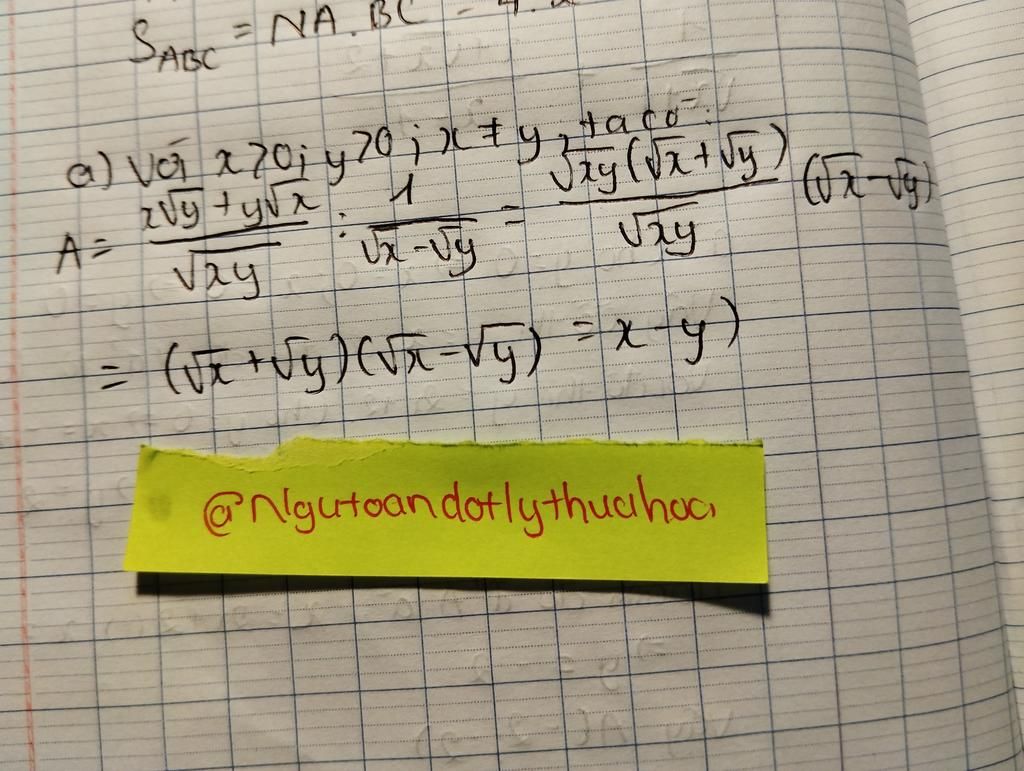 S_ABC = NA.BC =
a) Với x>0; y>0; x ≠ y, ta có:
A = (x√y + y√x)/√xy : 1/(√x - √y) = √xy(√x + √y)/√xy (√x - √y)
= (√x + √y)(√x - √y) = x - y)
@Ngutoandotlythuchoc